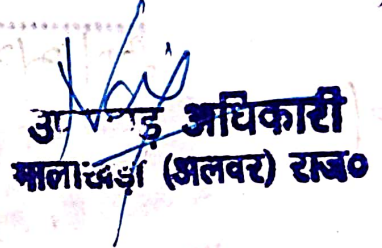 उपखण्ड अधिकारी
मालाखेड़ा (अलवर) राज०